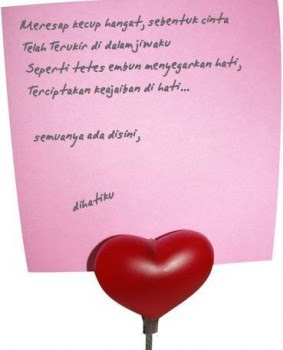 Meresap kecup hangat, sebentuk cinta
Telah Terukir di dalamjiwaku
Seperti tetes embun menyegarkan hati,
Terciptakan keajaiban di hati...
semuanya ada disini,
dihatiku